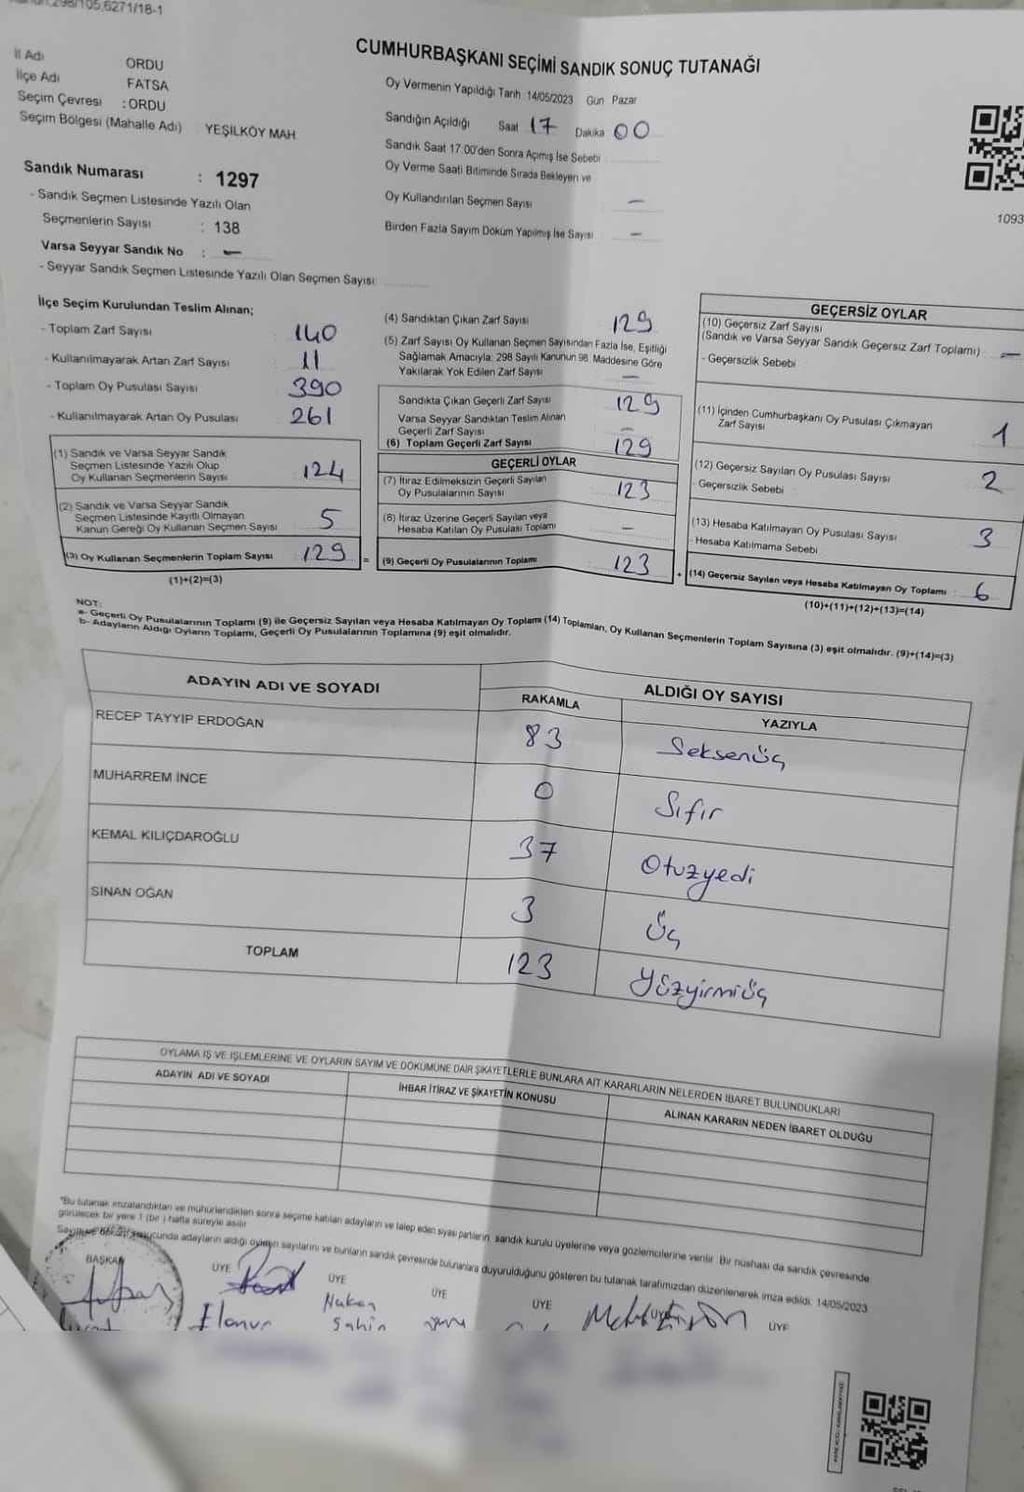 298/105,6271/18-1
CUMHURBAŞKANI SEÇİMİ SANDIK SONUÇ TUTANAĞI
İl Adı ORDU
İlçe Adı FATSA
Seçim Çevresi : ORDU
Seçim Bölgesi (Mahalle Adı) YEŞİLKÖY MAH.
Sandık Numarası : 1297
- Sandık Seçmen Listesinde Yazılı Olan
Seçmenlerin Sayısı : 138
Varsa Seyyar Sandık No : -
- Seyyar Sandık Seçmen Listesinde Yazılı Olan Seçmen Sayısı
Oy Vermenin Yapıldığı Tarih :14/05/2023 Gün Pazar
Sandığın Açıldığı Saat 17 Dakika 00
Sandık Saat 17.00'den Sonra Açmış İse Sebebi
Oy Verme Saati Bitiminde Sırada Bekleyen ve
Oy Kullandırılan Seçmen Sayısı -
Birden Fazla Sayım Döküm Yapılmış İse Sayısı -
1093
İlçe Seçim Kurulundan Teslim Alınan;
- Toplam Zarf Sayısı 140
- Kullanılmayarak Artan Zarf Sayısı 11
- Toplam Oy Pusulası Sayısı 390
- Kullanılmayarak Artan Oy Pusulası 261
(1) Sandık ve Varsa Seyyar Sandık
Seçmen Listesinde Yazılı Olup
Oy Kullanan Seçmenlerin Sayısı 124
(2) Sandık ve Varsa Seyyar Sandık
Seçmen Listesinde Kayıtlı Olmayan
Kanun Gereği Oy Kullanan Seçmen Sayısı 5
(3) Oy Kullanan Seçmenlerin Toplam Sayısı 129 =
(1)+(2)=(3)
(4) Sandıktan Çıkan Zarf Sayısı 129
(5) Zarf Sayısı Oy Kullanan Seçmen Sayısından Fazla İse, Eşitliği
Sağlamak Amacıyla; 298 Sayılı Kanunun 98. Maddesine Göre
Yakılarak Yok Edilen Zarf Sayısı -
Sandıkta Çıkan Geçerli Zarf Sayısı 129
Varsa Seyyar Sandıktan Teslim Alınan
Geçerli Zarf Sayısı -
(6) Toplam Geçerli Zarf Sayısı 129
GEÇERLİ OYLAR
(7) İtiraz Edilmeksizin Geçerli Sayılan
Oy Pusulalarının Sayısı 123
(8) İtiraz Üzerine Geçerli Sayılan veya
Hesaba Katılan Oy Pusulası Toplamı -
(9) Geçerli Oy Pusulalarının Toplamı 123 +
GEÇERSİZ OYLAR
(10) Geçersiz Zarf Sayısı
(Sandık ve Varsa Seyyar Sandık Geçersiz Zarf Toplamı) -
- Geçersizlik Sebebi
(11) İçinden Cumhurbaşkanı Oy Pusulası Çıkmayan
Zarf Sayısı 1
(12) Geçersiz Sayılan Oy Pusulası Sayısı 2
- Geçersizlik Sebebi
(13) Hesaba Katılmayan Oy Pusulası Sayısı 3
- Hesaba Katılmama Sebebi
(14) Geçersiz Sayılan veya Hesaba Katılmayan Oy Toplamı : 6
(10)+(11)+(12)+(13)=(14)
NOT:
a- Geçerli Oy Pusulalarının Toplamı (9) ile Geçersiz Sayılan veya Hesaba Katılmayan Oy Toplamı (14) Toplamları, Oy Kullanan Seçmenlerin Toplam Sayısına (3) eşit olmalıdır. (9)+(14)=(3)
b- Adayların Aldığı Oyların Toplamı, Geçerli Oy Pusulalarının Toplamına (9) eşit olmalıdır.
ADAYIN ADI VE SOYADI ALDIĞI OY SAYISI
RAKAMLA YAZIYLA
RECEP TAYYİP ERDOĞAN 83 Seksenüç
MUHARREM İNCE 0 Sıfır
KEMAL KILIÇDAROĞLU 37 Otuzyedi
SİNAN OĞAN 3 Üç
TOPLAM 123 Yüzyirmiüç
OYLAMA İŞ VE İŞLEMLERİNE VE OYLARIN SAYIM VE DÖKÜMÜNE DAİR ŞİKAYETLERLE BUNLARA AİT KARARLARIN NELERDEN İBARET BULUNDUKLARI
ADAYIN ADI VE SOYADI İHBAR İTİRAZ VE ŞİKAYETİN KONUSU ALINAN KARARIN NEDEN İBARET OLDUĞU
*Bu tutanak imzalandıktan ve mühürlendikten sonra seçime katılan adayların ve talep eden siyasi partilerin, sandık kurulu üyelerine veya gözlemcilerine verilir. Bir nüshası da sandık çevresinde
görülecek bir yere 1 (bir) hafta süreyle asılır.
adayların aldığı oyların sayılarını ve bunların sandık çevresinde bulunanlara duyurulduğunu gösteren bu tutanak tarafımızdan düzenlenerek imza edildi. 14/05/2023
BAŞKAN ÜYE ÜYE ÜYE ÜYE ÜYE
Elanur
Hakan
Şahin